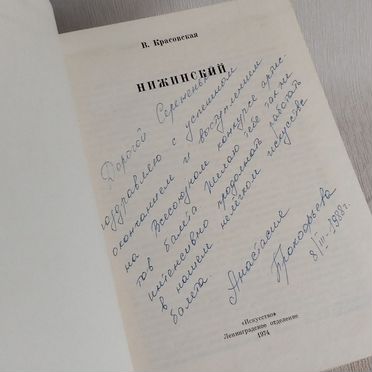 В. Красовская
НИЖИНСКИЙ
Дорогой Сереженька
поздравляю с успешным
окончанием и выступлением
на Всесоюзном конкурсе артис-
тов балета желаю тебе так же
интенсивно продолжать работать
в нашем нелёгком искусстве
балета.
Анастасия
Прокофьева
8/III-1988г.
«Искусство»
Ленинградское отделение
1974